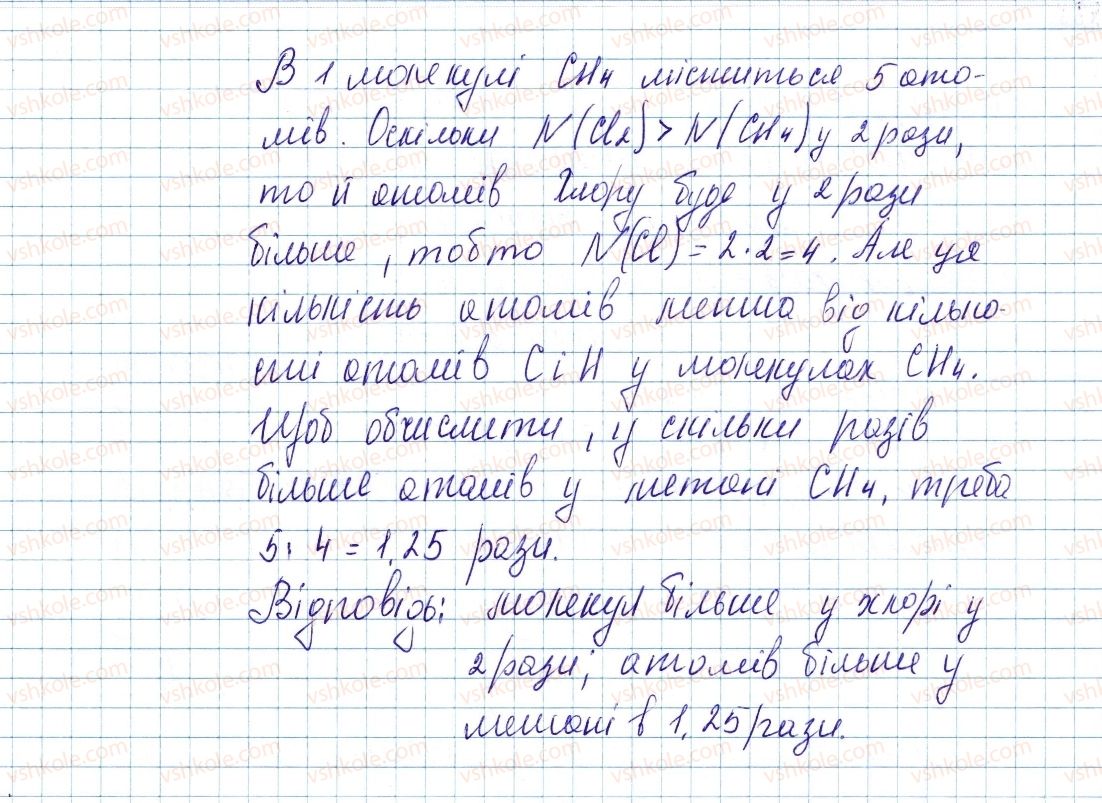 В 1 молекулі CH4 міститься 5 ато-
мів. Оскільки N(Cl2) > N(CH4) у 2 рази,
то й атомів Хлору буде у 2 рази
більше, тобто N(Cl) = 2·2=4. Але ця
кількість атомів менша від кілько-
сті атомів C і H у молекулах CH4.
Щоб обчислити, у скільки разів
більше атомів у метані CH4, треба
5:4 = 1,25 рази.
Відповідь: молекул більше у хлорі у
2 рази; атомів більше у
метані в 1,25 рази.
vshkole.com